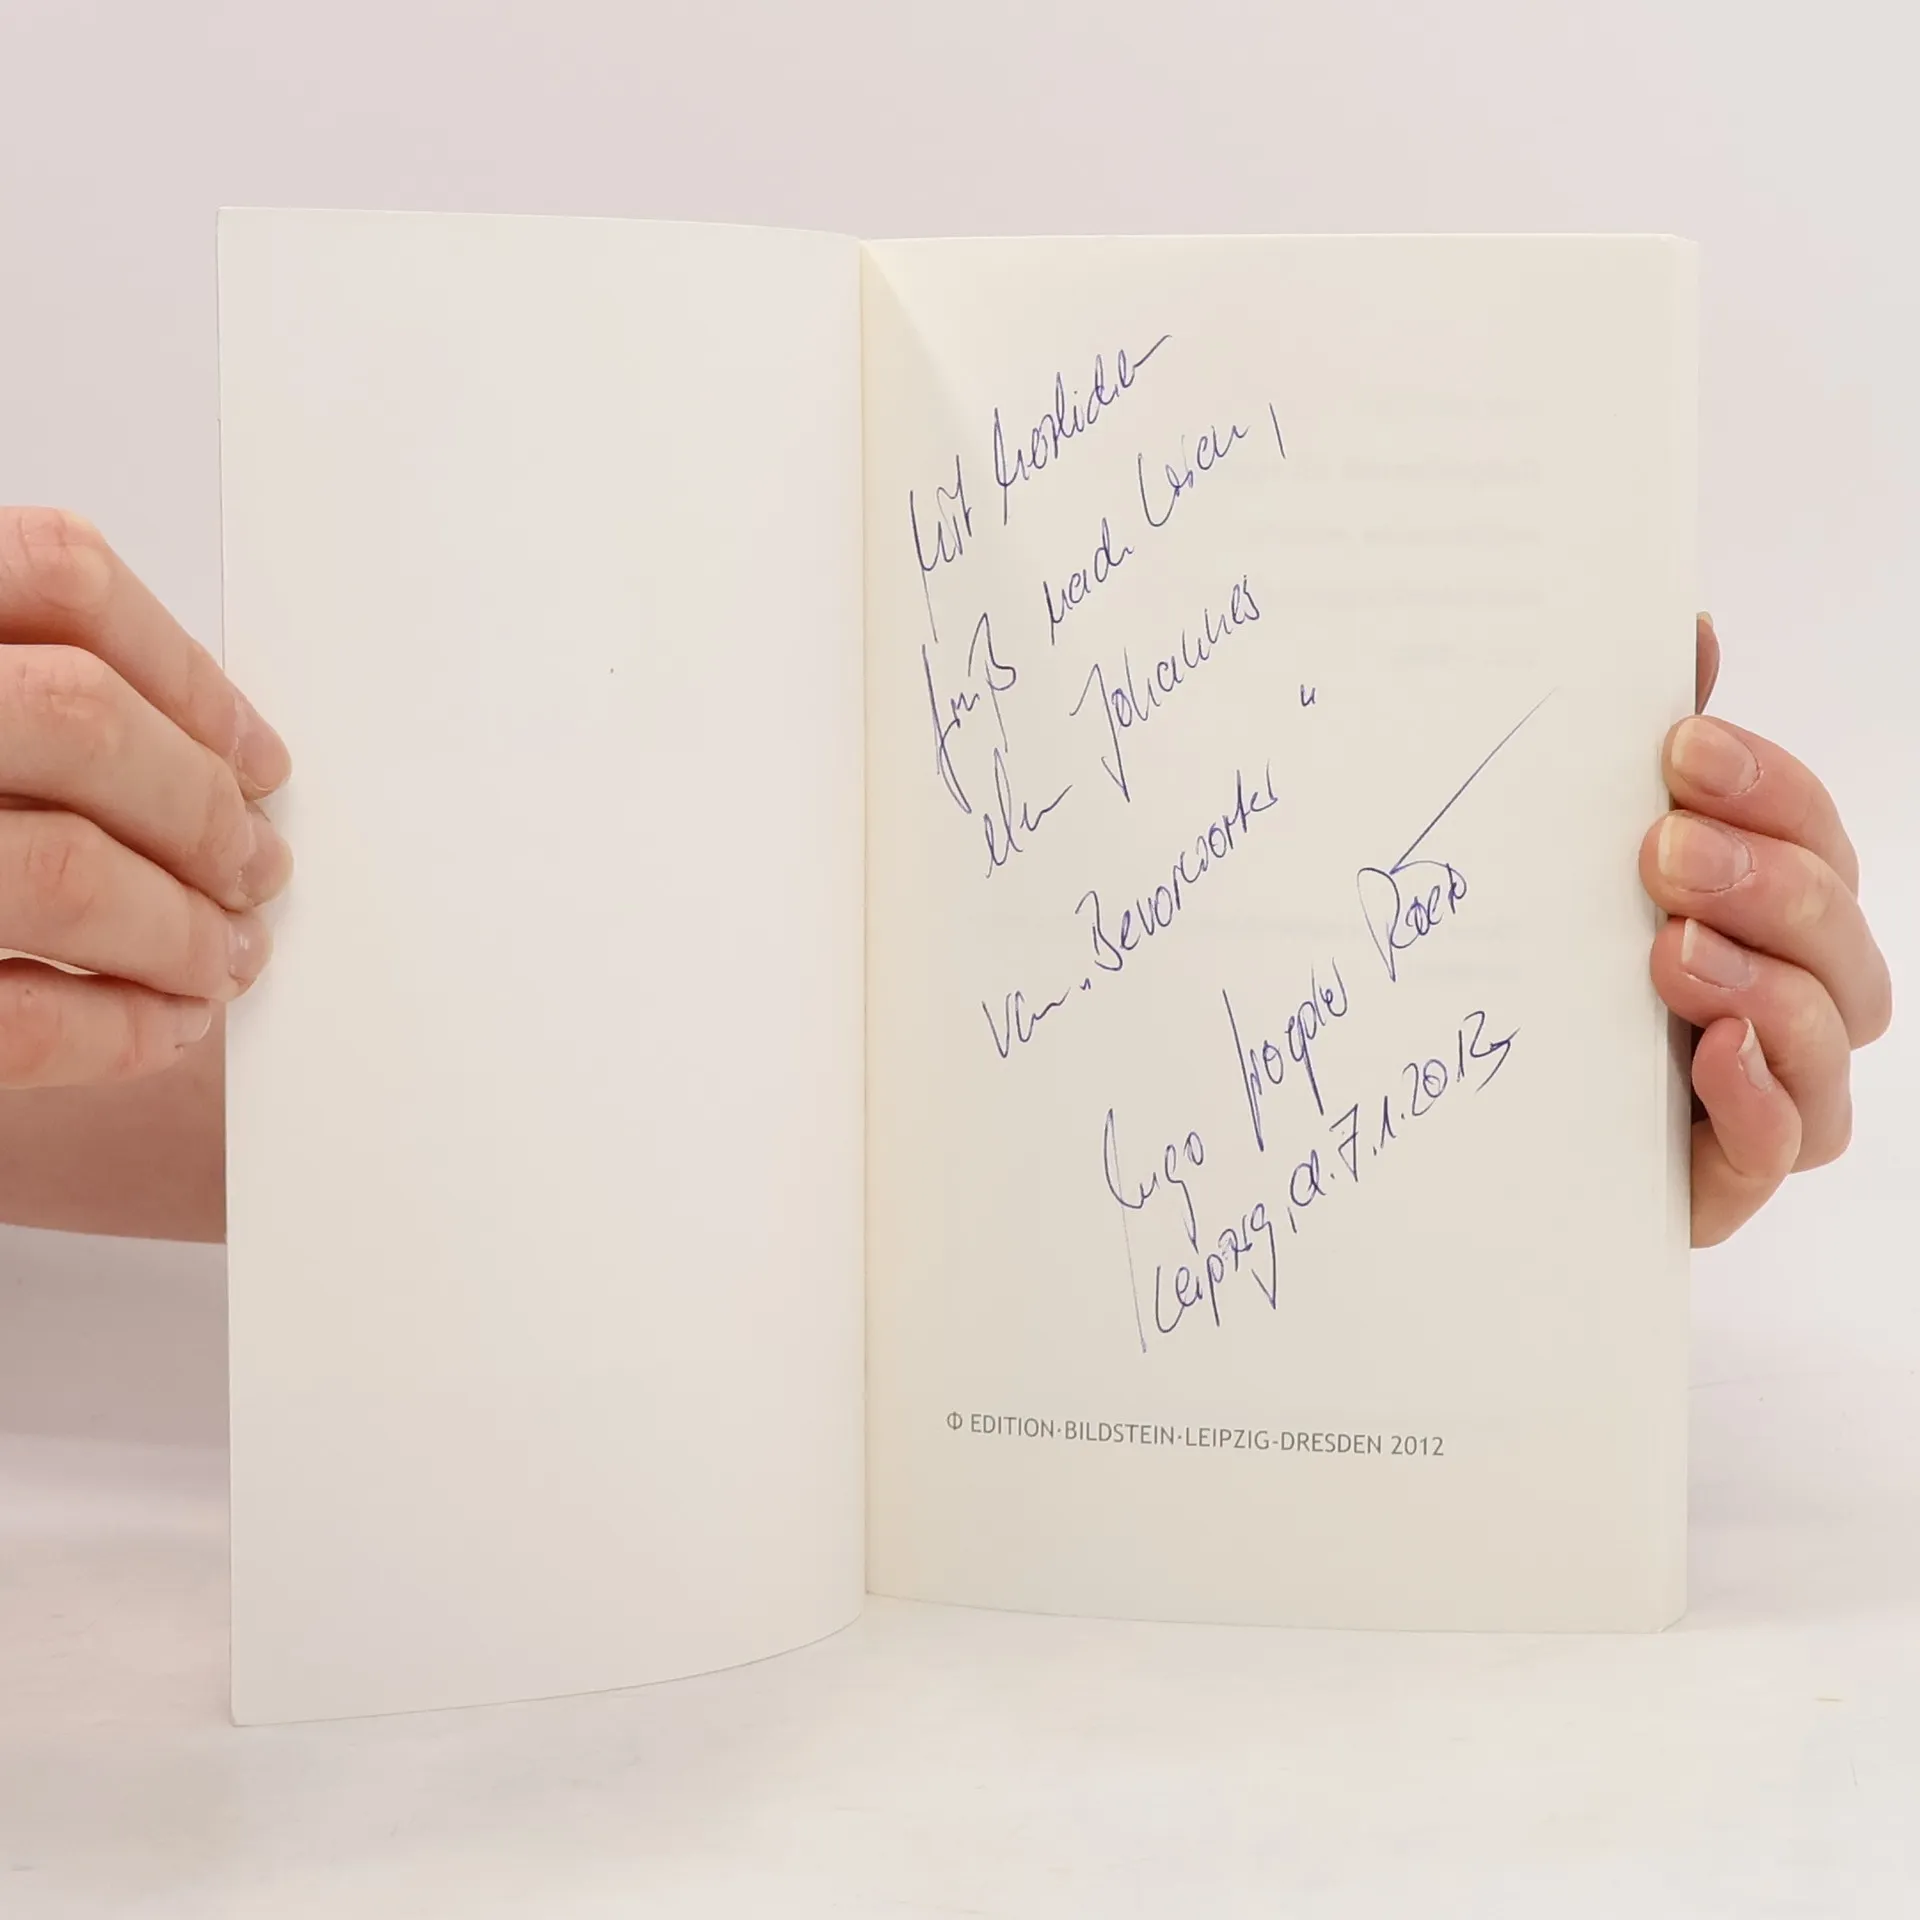 Mit herzlichem
Gruß nach Lesen,
dem Johannes
von „Bevorworter"
Ingo
Leipzig, d. 7.1.2013
Φ EDITION·BILDSTEIN·LEIPZIG-DRESDEN 2012